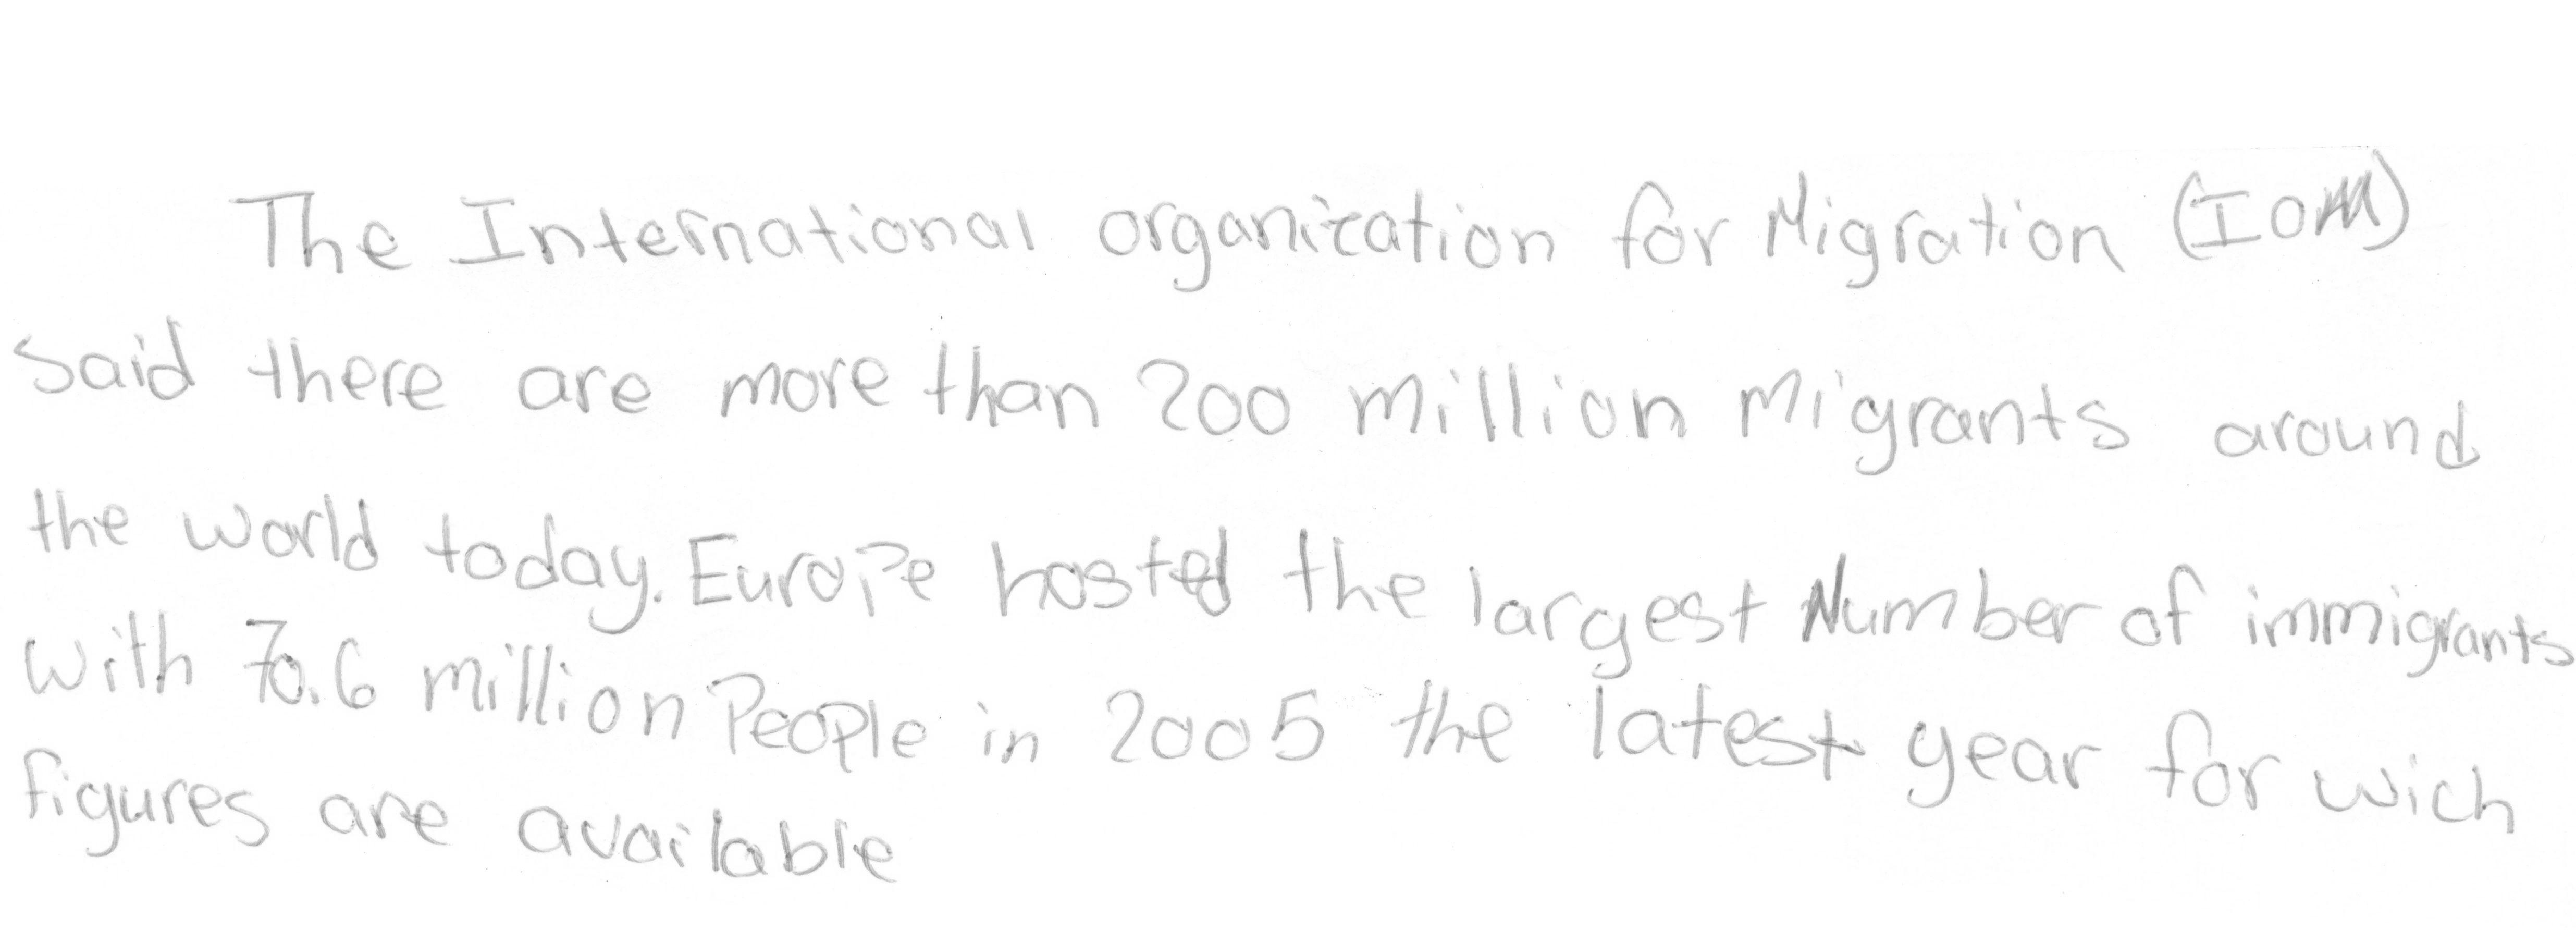 The International organization for Migration (IOM)
said there are more than 200 million Migrants around
the world today. Europe hosted the largest Number of immigrants
with 70.6 million People in 2005 the latest year for wich
figures are available